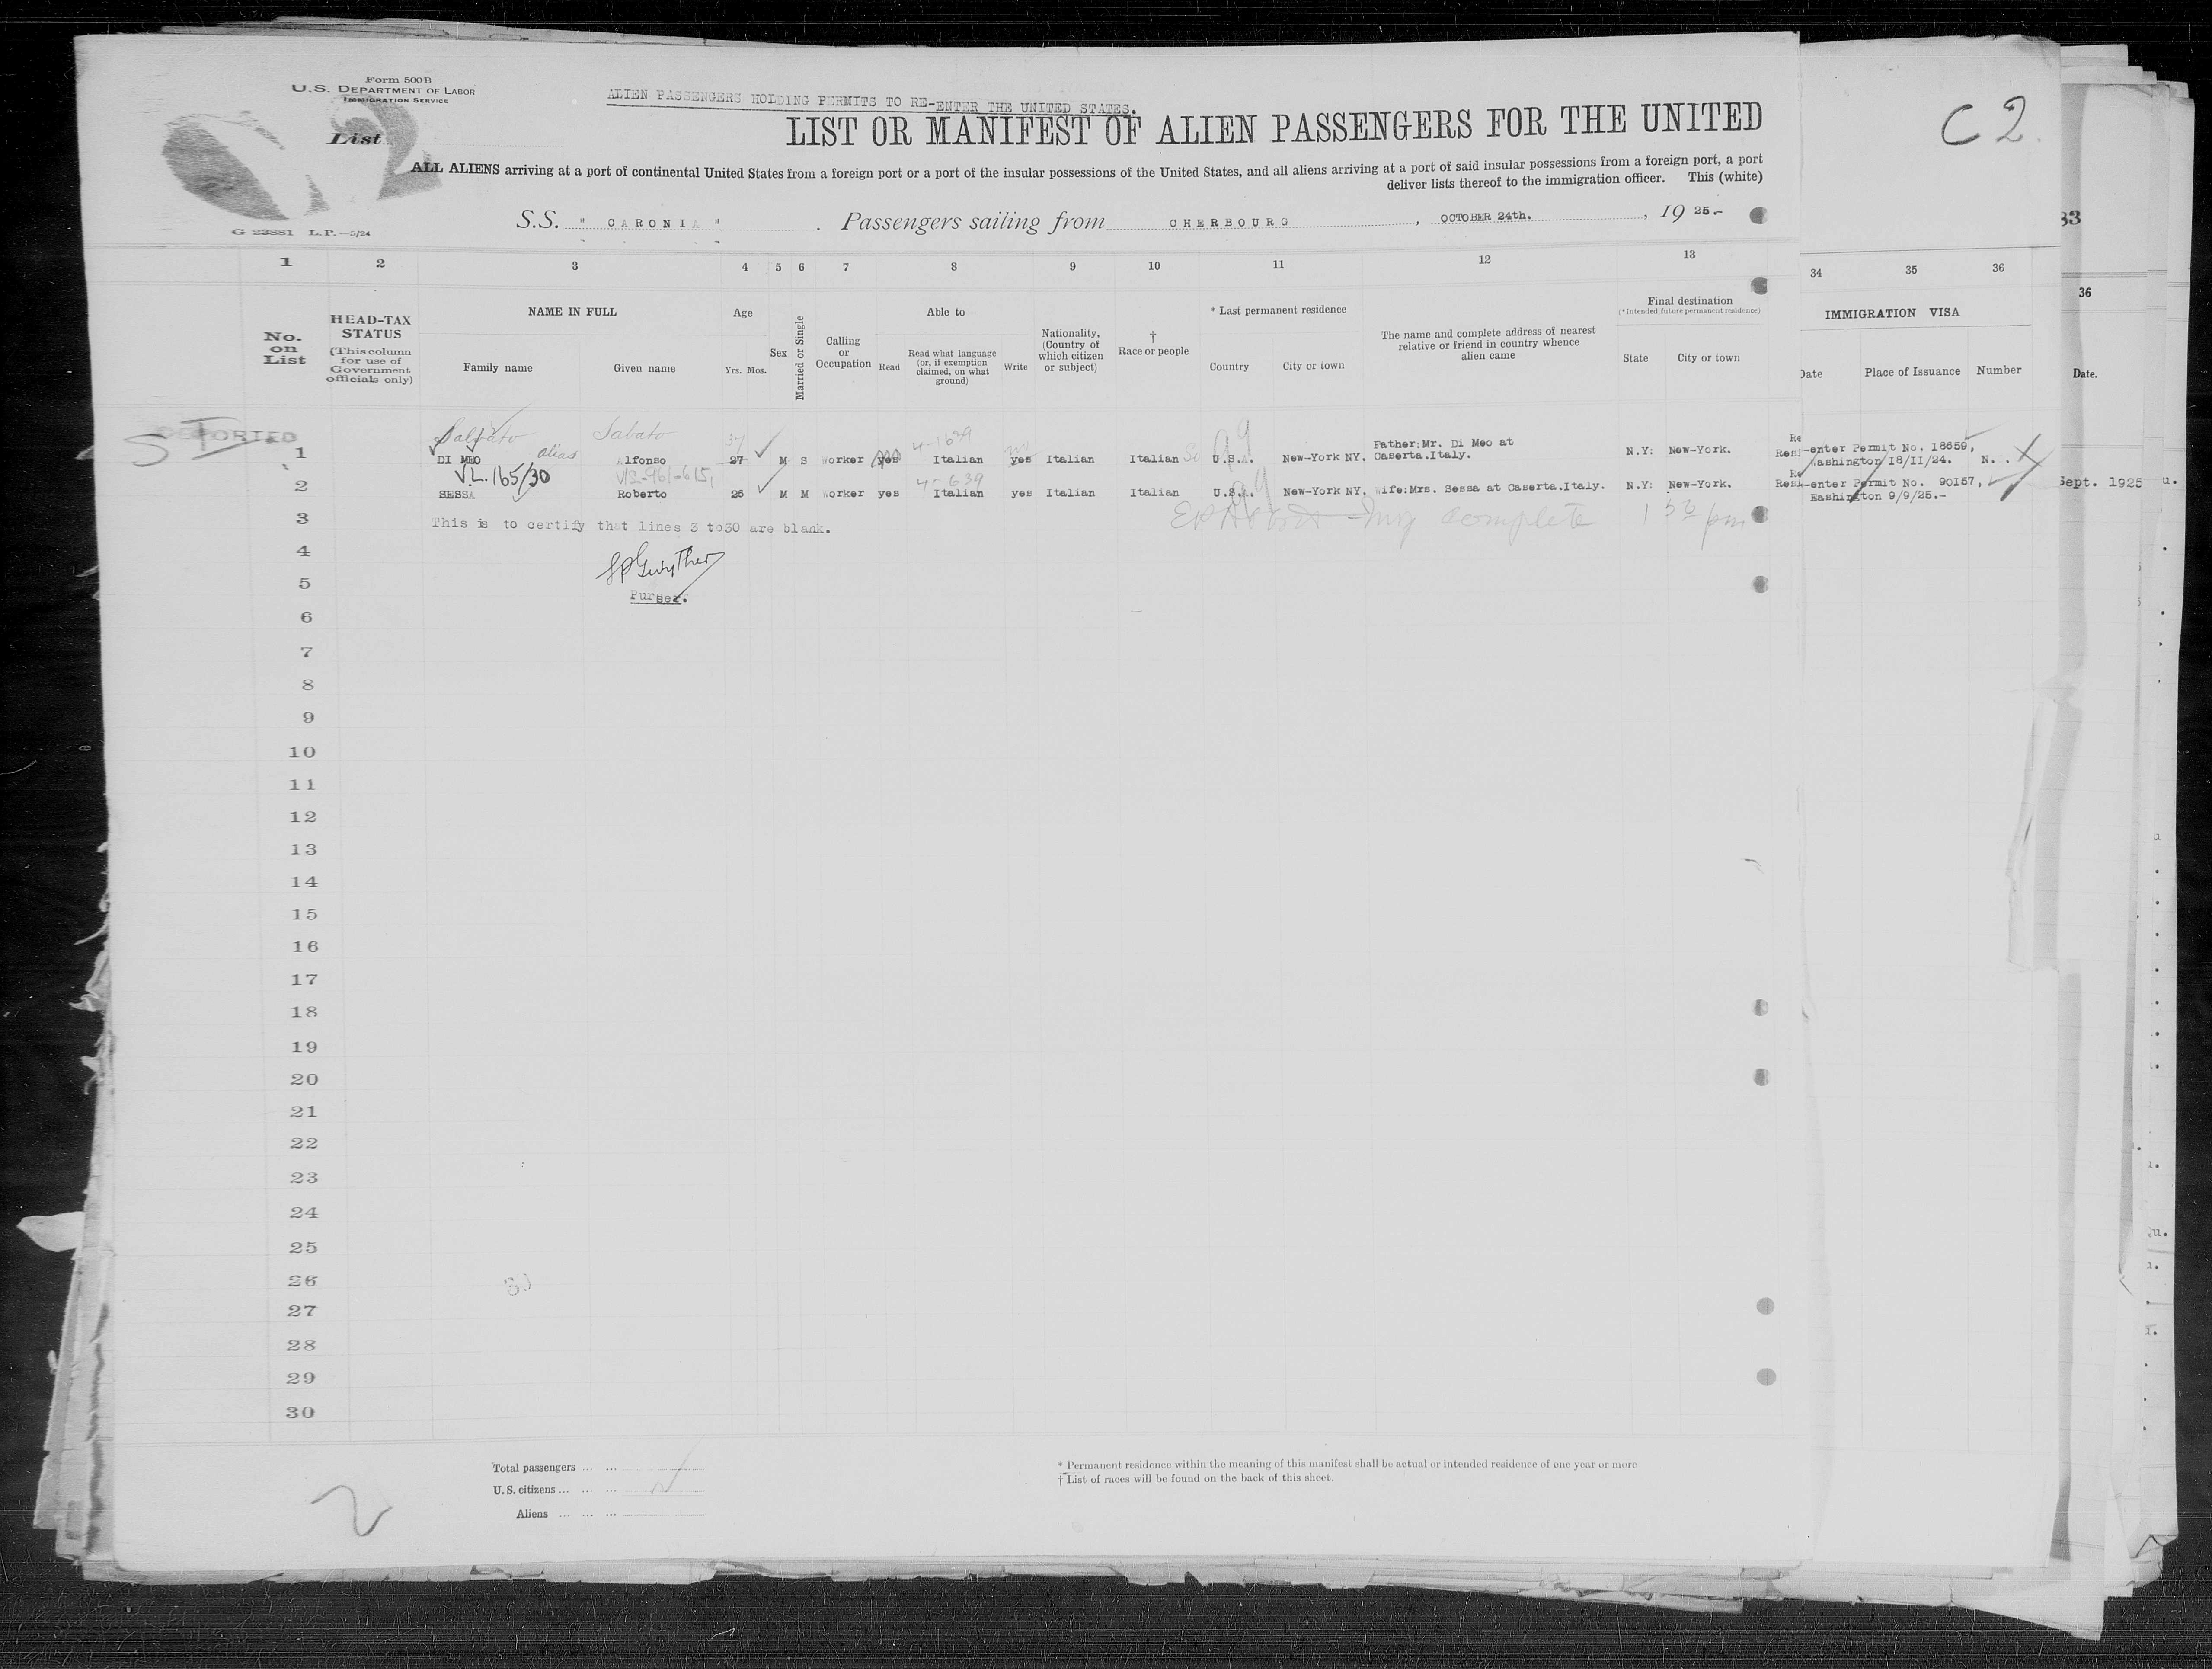 Form 500B
U.S. DEPARTMENT OF LABOR
IMMIGRATION SERVICE
List 2
G 23881 L.P.—5/24
ALIEN PASSENGERS HOLDING PERMITS TO RE-ENTER THE UNITED STATES.
LIST OR MANIFEST OF ALIEN PASSENGERS FOR THE UNITED
C 2.
ALL ALIENS arriving at a port of continental United States from a foreign port or a port of the insular possessions of the United States, and all aliens arriving at a port of said insular possessions from a foreign port, a port
deliver lists thereof to the immigration officer. This (white)
S.S. " CARONIA " . Passengers sailing from CHERBOURG , OCTOBER 24th. , 19 25.-
33
1 2 3 4 5 6 7 8 9 10 11 12 13 34 35 36
No. on List
HEAD-TAX STATUS (This column for use of Government officials only)
NAME IN FULL
Family name Given name
Age
Yrs. Mos.
Sex
Married or Single
Calling or Occupation
Able to
Read
Read what language (or, if exemption claimed, on what ground)
Write
Nationality, (Country of which citizen or subject)
† Race or people
* Last permanent residence
Country City or town
The name and complete address of nearest relative or friend in country whence alien came
Final destination
(*Intended future permanent residence)
State City or town
IMMIGRATION VISA
Date Place of Issuance Number
36
Date.
DEPORTED
Sabato 37 4-1639
1 DI MEO alias Alfonso 27 M S Worker yes Italian yes Italian Italian So U.S.A. New-York NY. Father:Mr. Di Meo at Caserta.Italy. N.Y: New-York. Re-enter Permit No. 18659, Washington 18/II/24.
V.L. 165/30 V/2-961-615, 4-639
2 SESSA Roberto 26 M M Worker yes Italian yes Italian Italian U.S.A. New-York NY. Wife:Mrs. Sessa at Caserta.Italy. N.Y: New-York. Re-enter Permit No. 90157, Eashington 9/9/25.-
Sept. 1925 u.
3 This is to certify that lines 3 to30 are blank.
complete 1 50 pm
4
5 Purser.
6
7
8
9
10
11
12
13
14
15
16
17
18
19
20
21
22
23
24
25
26
27
28
29
30
Total passengers ... ...
U.S. citizens ... ... ...
Aliens ... ... ...
2
* Permanent residence within the meaning of this manifest shall be actual or intended residence of one year or more
† List of races will be found on the back of this sheet.